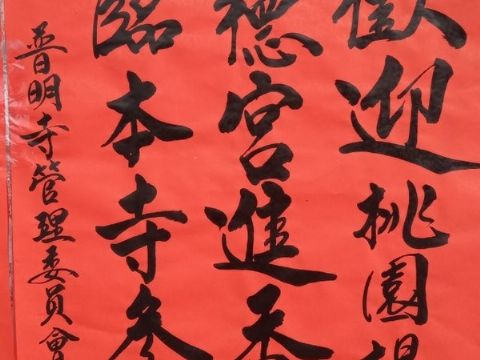 歡迎桃園
德宮進香
臨本寺參
普明寺管理委員會